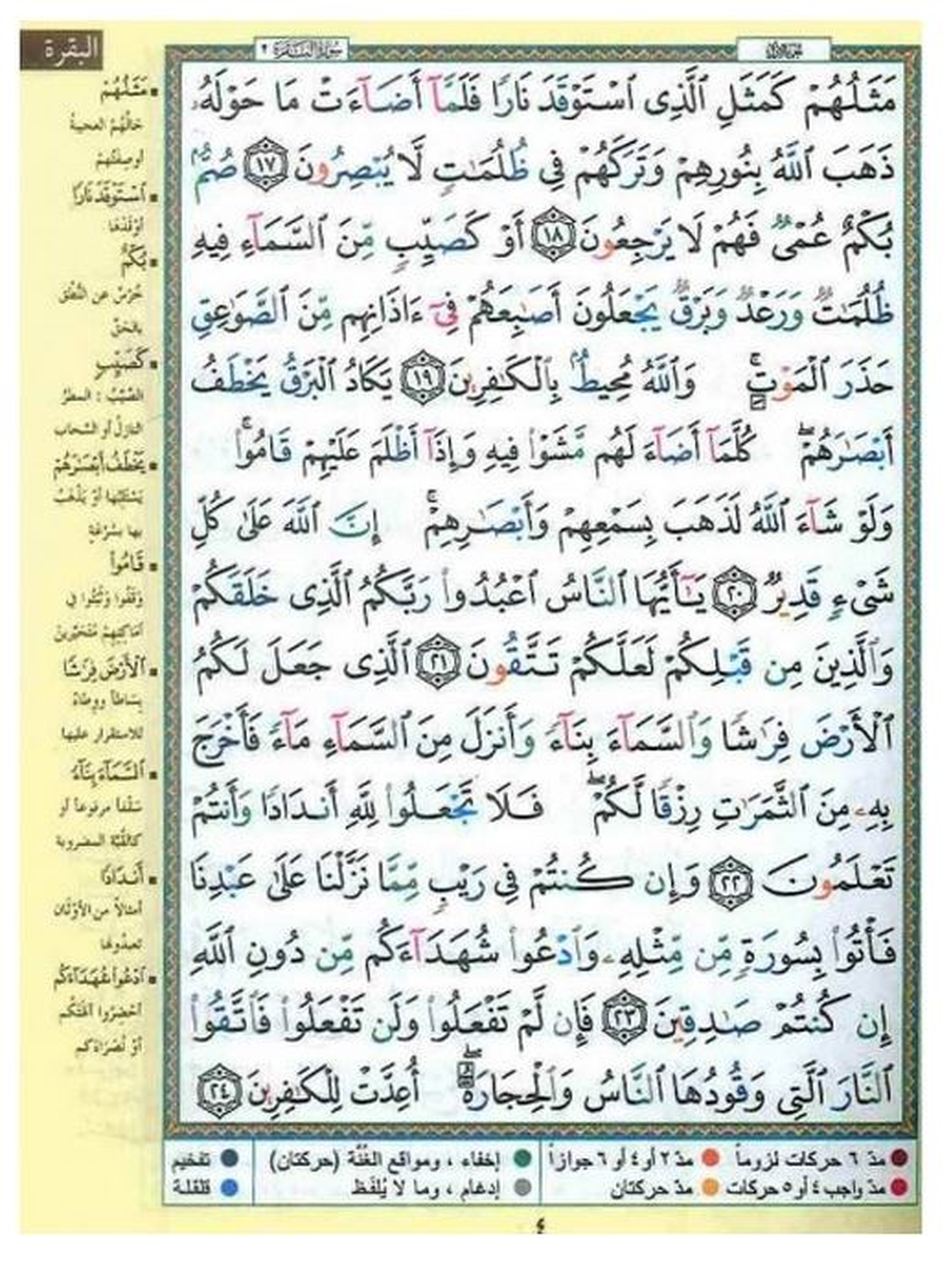 البقرة
سورة البقرة ٢
الجزء الأول
مَثَلُهُمْ كَمَثَلِ ٱلَّذِى ٱسْتَوْقَدَ نَارًا فَلَمَّآ أَضَآءَتْ مَا حَوْلَهُۥ
ذَهَبَ ٱللَّهُ بِنُورِهِمْ وَتَرَكَهُمْ فِى ظُلُمَٰتٍ لَّا يُبْصِرُونَ ١٧ صُمٌّۢ
بُكْمٌ عُمْىٌ فَهُمْ لَا يَرْجِعُونَ ١٨ أَوْ كَصَيِّبٍ مِّنَ ٱلسَّمَآءِ فِيهِ
ظُلُمَٰتٌ وَرَعْدٌ وَبَرْقٌ يَجْعَلُونَ أَصَٰبِعَهُمْ فِىٓ ءَاذَانِهِم مِّنَ ٱلصَّوَٰعِقِ
حَذَرَ ٱلْمَوْتِ ۚ وَٱللَّهُ مُحِيطٌۢ بِٱلْكَٰفِرِينَ ١٩ يَكَادُ ٱلْبَرْقُ يَخْطَفُ
أَبْصَٰرَهُمْ ۖ كُلَّمَآ أَضَآءَ لَهُم مَّشَوْا۟ فِيهِ وَإِذَآ أَظْلَمَ عَلَيْهِمْ قَامُوا۟ ۚ
وَلَوْ شَآءَ ٱللَّهُ لَذَهَبَ بِسَمْعِهِمْ وَأَبْصَٰرِهِمْ ۚ إِنَّ ٱللَّهَ عَلَىٰ كُلِّ
شَىْءٍ قَدِيرٌ ٢٠ يَٰٓأَيُّهَا ٱلنَّاسُ ٱعْبُدُوا۟ رَبَّكُمُ ٱلَّذِى خَلَقَكُمْ
وَٱلَّذِينَ مِن قَبْلِكُمْ لَعَلَّكُمْ تَتَّقُونَ ٢١ ٱلَّذِى جَعَلَ لَكُمُ
ٱلْأَرْضَ فِرَٰشًا وَٱلسَّمَآءَ بِنَآءً وَأَنزَلَ مِنَ ٱلسَّمَآءِ مَآءً فَأَخْرَجَ
بِهِۦ مِنَ ٱلثَّمَرَٰتِ رِزْقًا لَّكُمْ ۖ فَلَا تَجْعَلُوا۟ لِلَّهِ أَندَادًا وَأَنتُمْ
تَعْلَمُونَ ٢٢ وَإِن كُنتُمْ فِى رَيْبٍ مِّمَّا نَزَّلْنَا عَلَىٰ عَبْدِنَا
فَأْتُوا۟ بِسُورَةٍ مِّن مِّثْلِهِۦ وَٱدْعُوا۟ شُهَدَآءَكُم مِّن دُونِ ٱللَّهِ
إِن كُنتُمْ صَٰدِقِينَ ٢٣ فَإِن لَّمْ تَفْعَلُوا۟ وَلَن تَفْعَلُوا۟ فَٱتَّقُوا۟
ٱلنَّارَ ٱلَّتِى وَقُودُهَا ٱلنَّاسُ وَٱلْحِجَارَةُ ۖ أُعِدَّتْ لِلْكَٰفِرِينَ ٢٤
▪ مَثَلُهُمْ
حَالُهُمُ العجيبةُ
أو صِفتُهُمْ
▪ ٱسْتَوْقَدَ نَارًا
أوْقَدَهَا
▪ بُكْمٌ
خُرْسٌ عن النُّطْقِ
بالحَقِّ
▪ كَصَيِّبٍ
الصَّيِّبُ : المطرُ
النازلُ أو السَّحاب
▪ يَخْطَفُ أَبْصَٰرَهُمْ
يَسْتَلِبُهَا أوْ يَذْهَبُ
بها بسُرْعَةٍ
▪ قَامُوا۟
وَقَفُوا وثَبَتُوا في
أماكِنِهِمْ مُتَحَيِّرِينَ
▪ ٱلْأَرْضَ فِرَٰشًا
بِسَاطاً ووِطَاءً
للاستقرار عليها
▪ ٱلسَّمَآءَ بِنَآءً
سَقْفاً مرفوعاً أو
كالقُبَّة المضروبة
▪ أَندَادًا
أمثالاً من الأوْثَانِ
تعبدُونها
▪ ٱدْعُوا۟ شُهَدَآءَكُم
أحْضِرُوا آلِهَتَكُم
أوْ نُصَرَاءَكم
مدّ ٦ حركات لزوماً مدّ ٢ أو ٤ أو ٦ جوازاً إخفاء ، ومواقع الغُنَّة (حركتان) تفخيم
مدّ واجب ٤ أو ٥ حركات مدّ حركتان إدغام ، وما لا يُلفَظ قلقلة
٤